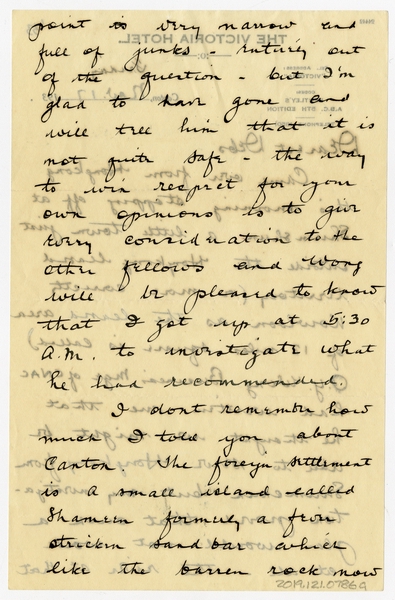 point is very narrow and
full of junks - entirely out
of the question - but I'm
glad to have gone and
will tell him that it is
not quite safe - the way
to win respect for your
own opinions is to give
every consideration to the
other fellows and Wong
will be pleased to know
that I got up at 5:30
A.M. to investigate what
he had recommended.
I dont remember how
much I told you about
Canton. The foreign settlement
is a small island called
Shameen formerly a
stricken sand bar which
like the barren rock now
2019.121.0786a
THE VICTORIA HOTEL